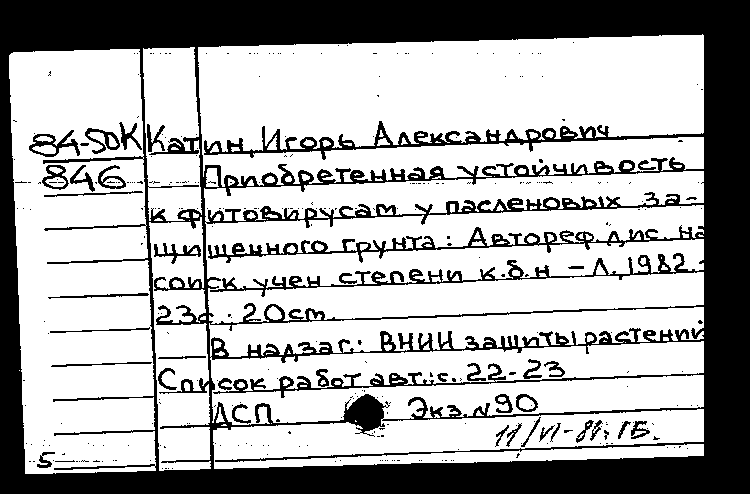 84-50К Катин, Игорь Александрович
846 Приобретенная устойчивость
к фитовирусам у пасленовых за-
щищенного грунта: Автореф. дис. на
соиск. учен степени к.б.н - Л., 1982.-
23с.; 20ст.
В надзаг.: ВНИИ защиты растений
Список работ авт.: с. 22-23
ДСП. Экз. N90
11/VI-84.
5